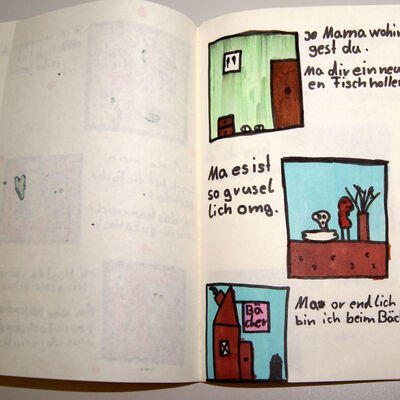 Mama wohin
gest du.
Ma dir ein neu
en Fisch hollen
Ma es ist
so grusel
lich omg.
Bä
cker
Ma or endlich
bin ich beim Bäc